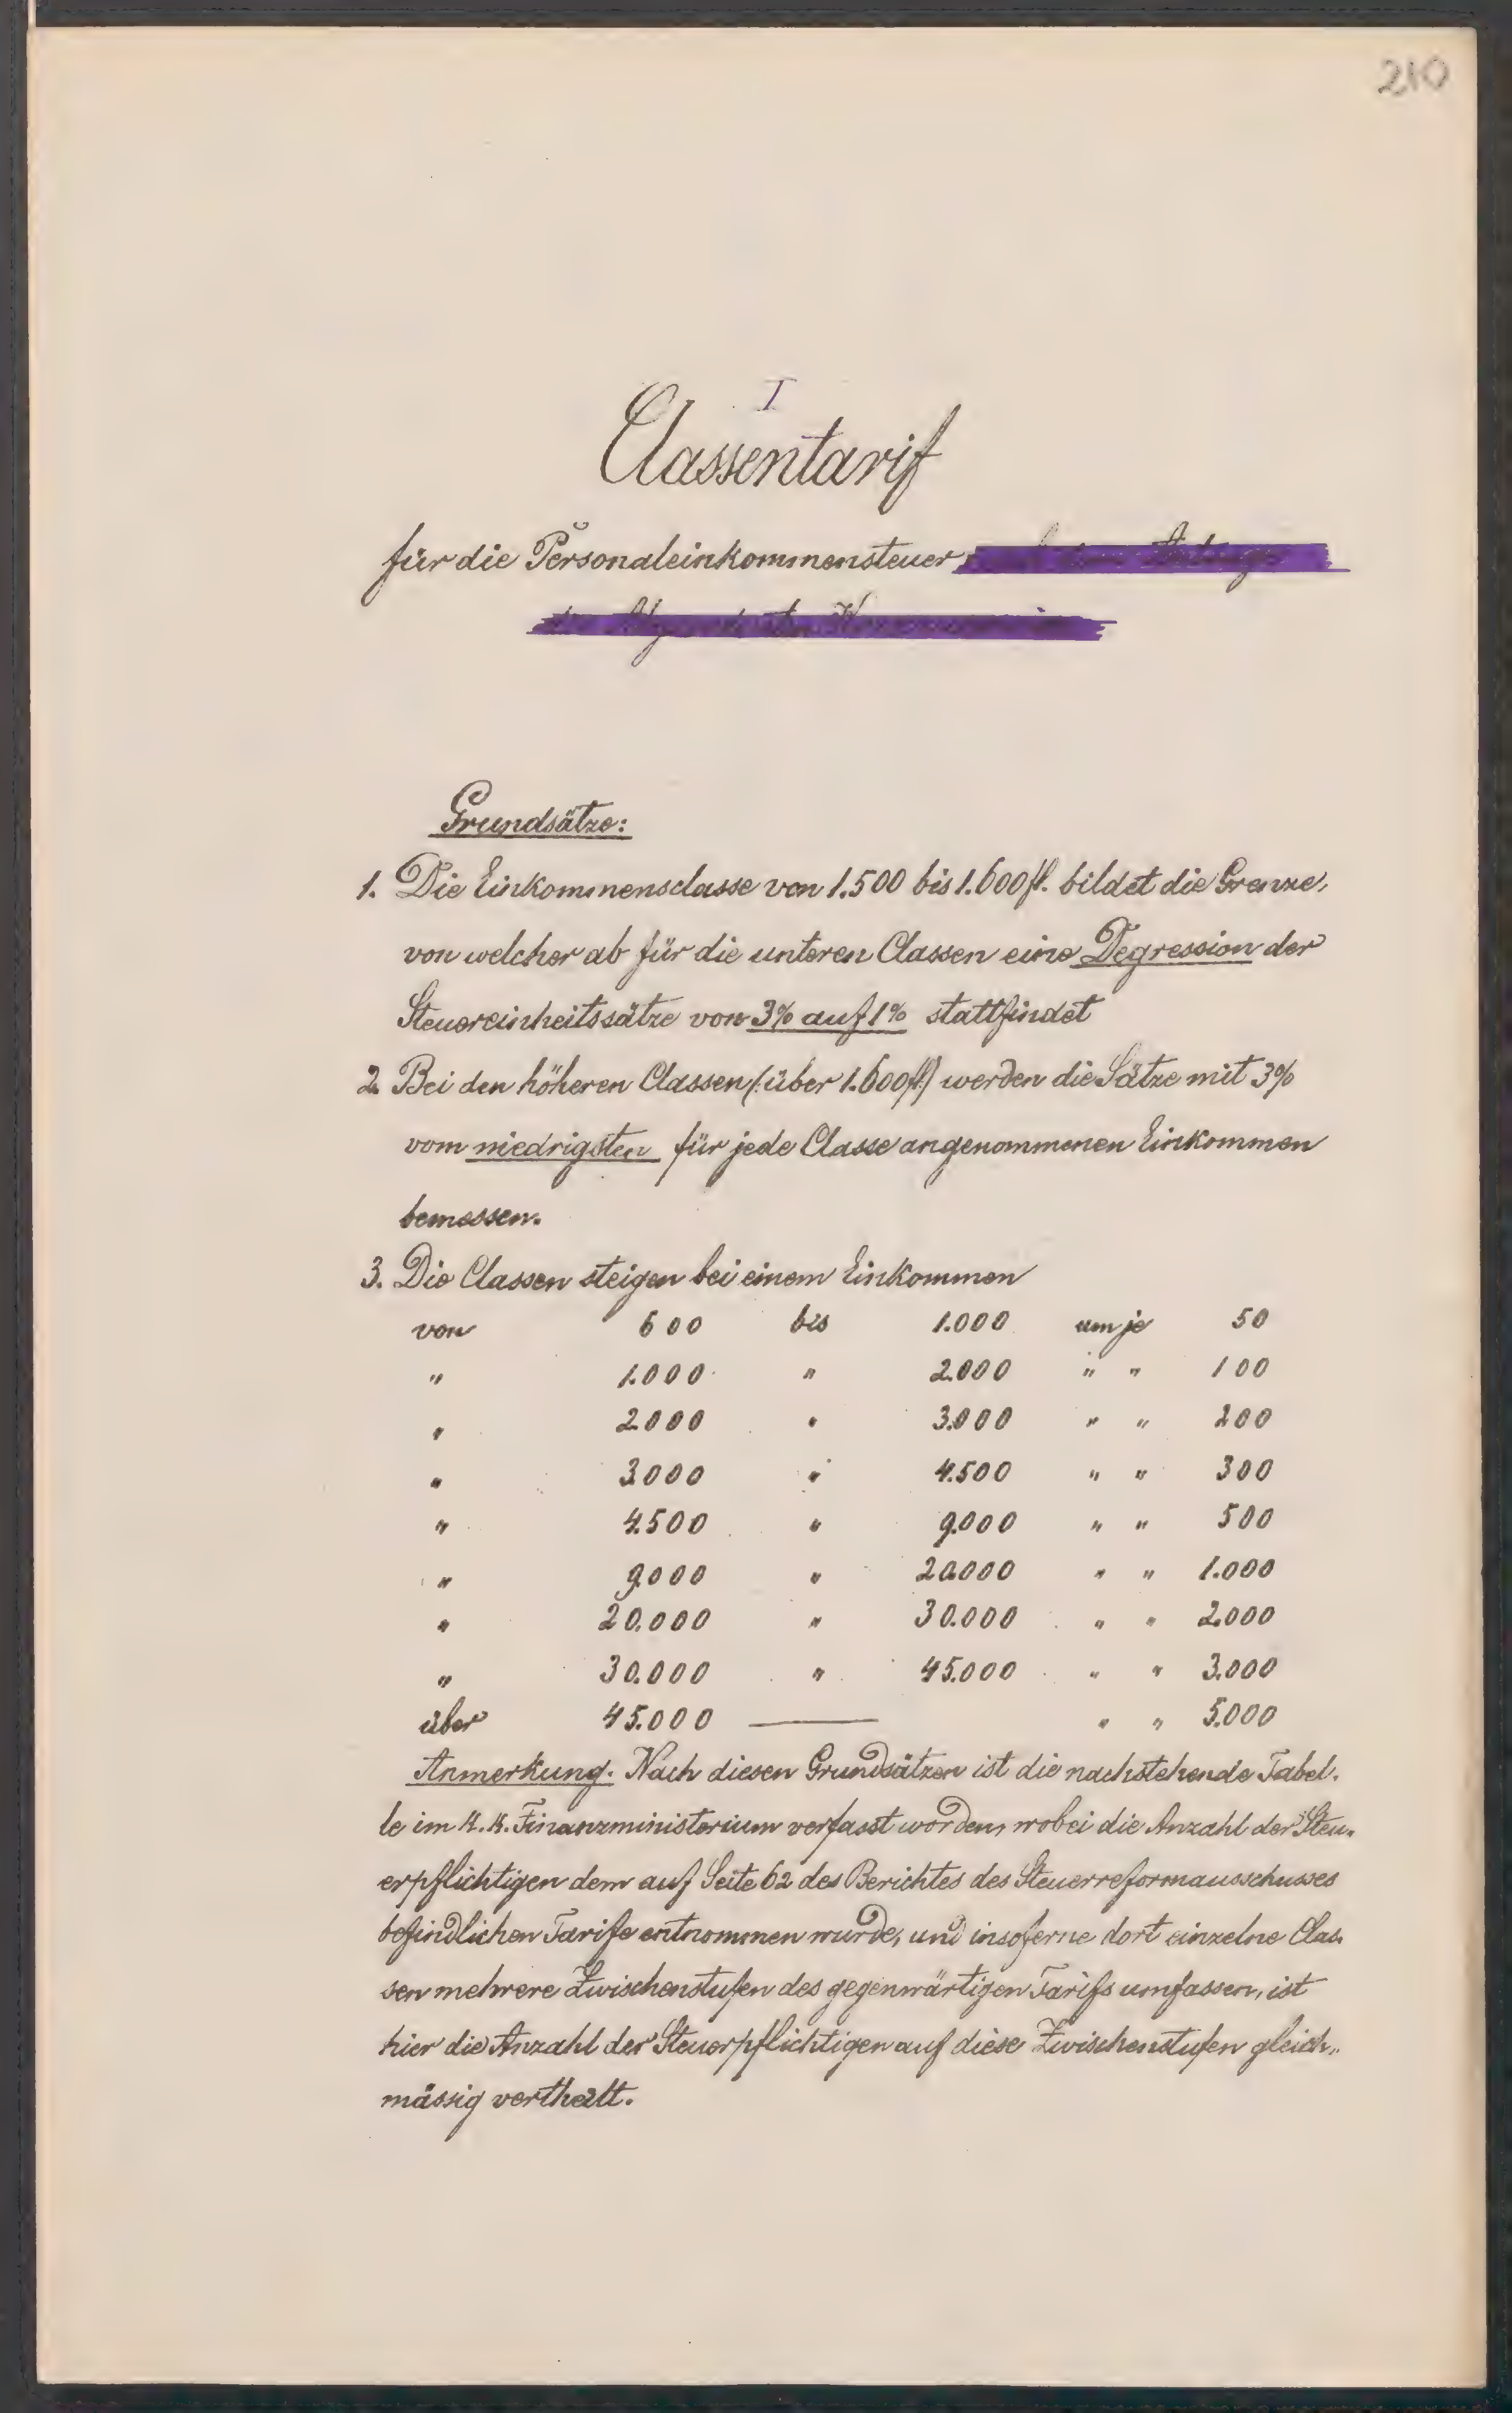 210
I
Classentarif
für die Personaleinkommensteuer
Grundsätze:
1. Die Einkommensclasse von 1.500 bis 1.600 fl. bildet die Grenze,
von welcher ab für die unteren Classen eine Degression der
Steuereinheitssätze von 3% auf 1% stattfindet
2. Bei den höheren Classen (:über 1.600 fl:) werden die Sätze mit 3%
vom niedrigsten für jede Classe angenommenen Einkommen
bemessen.
3. Die Classen steigen bei einem Einkommen
von 600 bis 1.000 um je 50
" 1.000 " 2.000 " " 100
" 2.000 " 3.000 " " 200
" 3.000 " 4.500 " " 300
" 4.500 " 9.000 " " 500
" 9.000 " 20.000 " " 1.000
" 20.000 " 30.000 " " 2.000
" 30.000 " 45.000 " " 3.000
über 45.000 — " " 5.000
Anmerkung. Nach diesen Grundsätzen ist die nachstehende Tabel-
le im k. k. Finanzministerium verfasst worden, wobei die Anzahl der Steu-
erpflichtigen dem auf Seite 62 des Berichtes des Steuerreformausschusses
befindlichen Tarife entnommen wurde, und insoferne dort einzelne Clas-
sen mehrere Zwischenstufen des gegenwärtigen Tarifs umfassen, ist
hier die Anzahl der Steuerpflichtigen auf diese Zwischenstufen gleich-
mässig vertheilt.